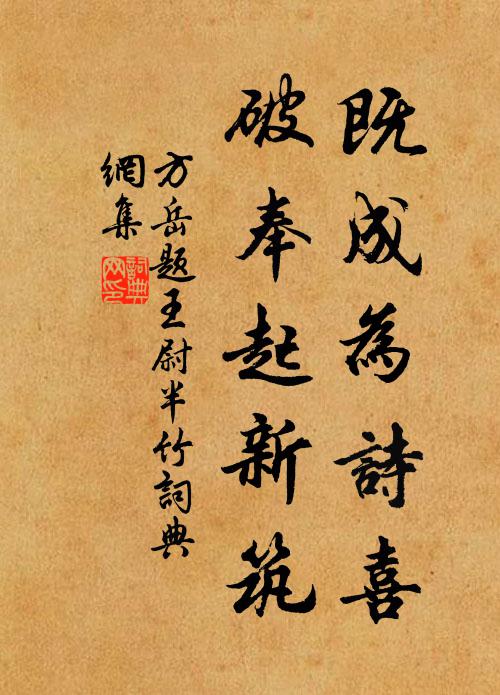 既成為詩喜
破奉起新筑
方岳題王尉半竹詞典
網集
詞典
网印